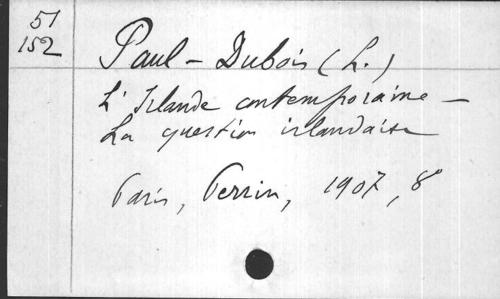 51
152
Paul-Dubois (L.)
L'Irlande contemporaine —
La question irlandaise
Paris, Perrin, 1907, 8°